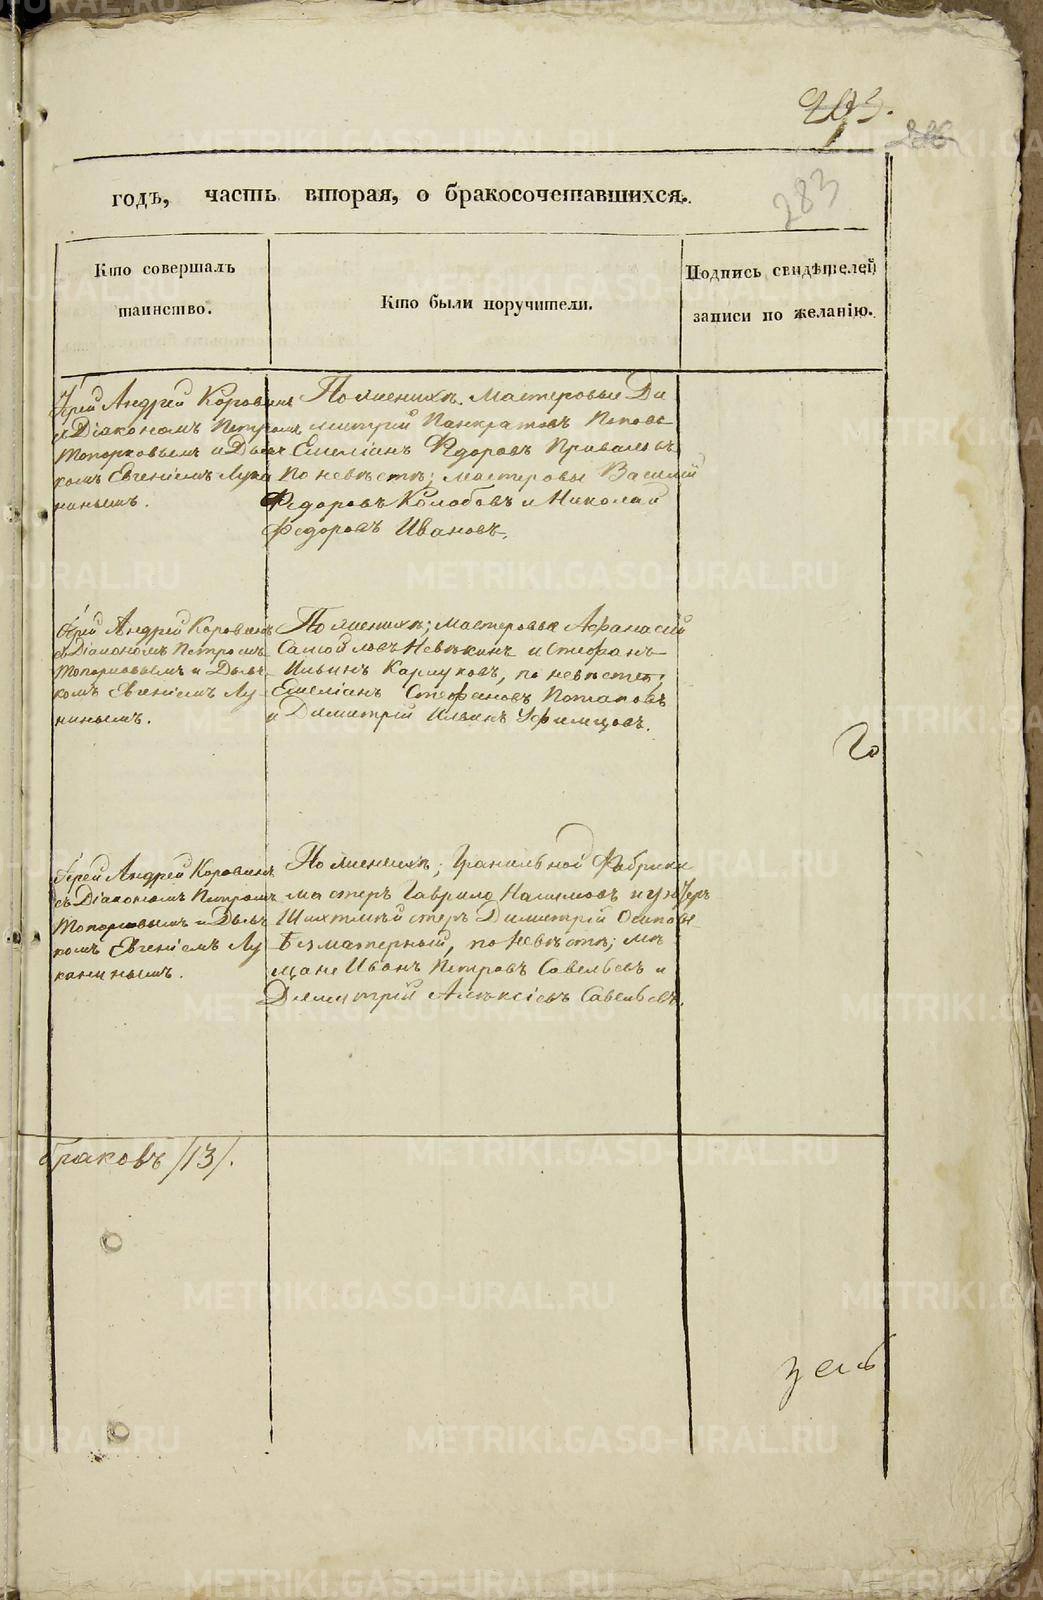 293.
283
годъ, часть вторая, о бракосочетавшихся.
Кто совершалъ таинство.
Кто были поручители.
Подпись свидѣтелей записи по желанію.
Іерей Андрей Коровинъ
съ Діакономъ Петромъ
Топорковымъ и Дьяч
комъ Евгеніемъ Лука
нинымъ.
По женихѣ. Мастеровые Ди
митрій Панкратовъ Поповъ
Емеліанъ Федоровъ Приваловъ
По невѣстѣ; мастеровые Василій
Федоровъ Колобовъ и Николай
Федоровъ Ивановъ.
Іерей Андрей Коровинъ
съ Діакономъ Петромъ
Топорковымъ и Дьяч
комъ Евгеніемъ Лу
нинымъ.
По женихѣ; мастеровые Афанасій
Самойловъ Невѣкинъ и Стефанъ
Ильинъ Кармуковъ, по невѣстѣ;
Емеліанъ Стефановъ Потаповъ
и Димитрій Ильинъ Уфимцовъ.
Го
Іерей Андрей Коровинъ
съ Діакономъ Петромъ
Топорковымъ и Дьяч
комъ Евгеніемъ Лу
канинымъ.
По женихѣ; Гранильной Фабрики
мастеръ Гаврило Налимовъ и унтеръ
Шихтмейстеръ Димитрій Осиповъ
Безматерный, по невѣстѣ; мѣ
щане Иванъ Петровъ Савельевъ и
Димитрій Алексіевъ Савельевъ.
браковъ /13/.
METRIKI.GASO-URAL.RU